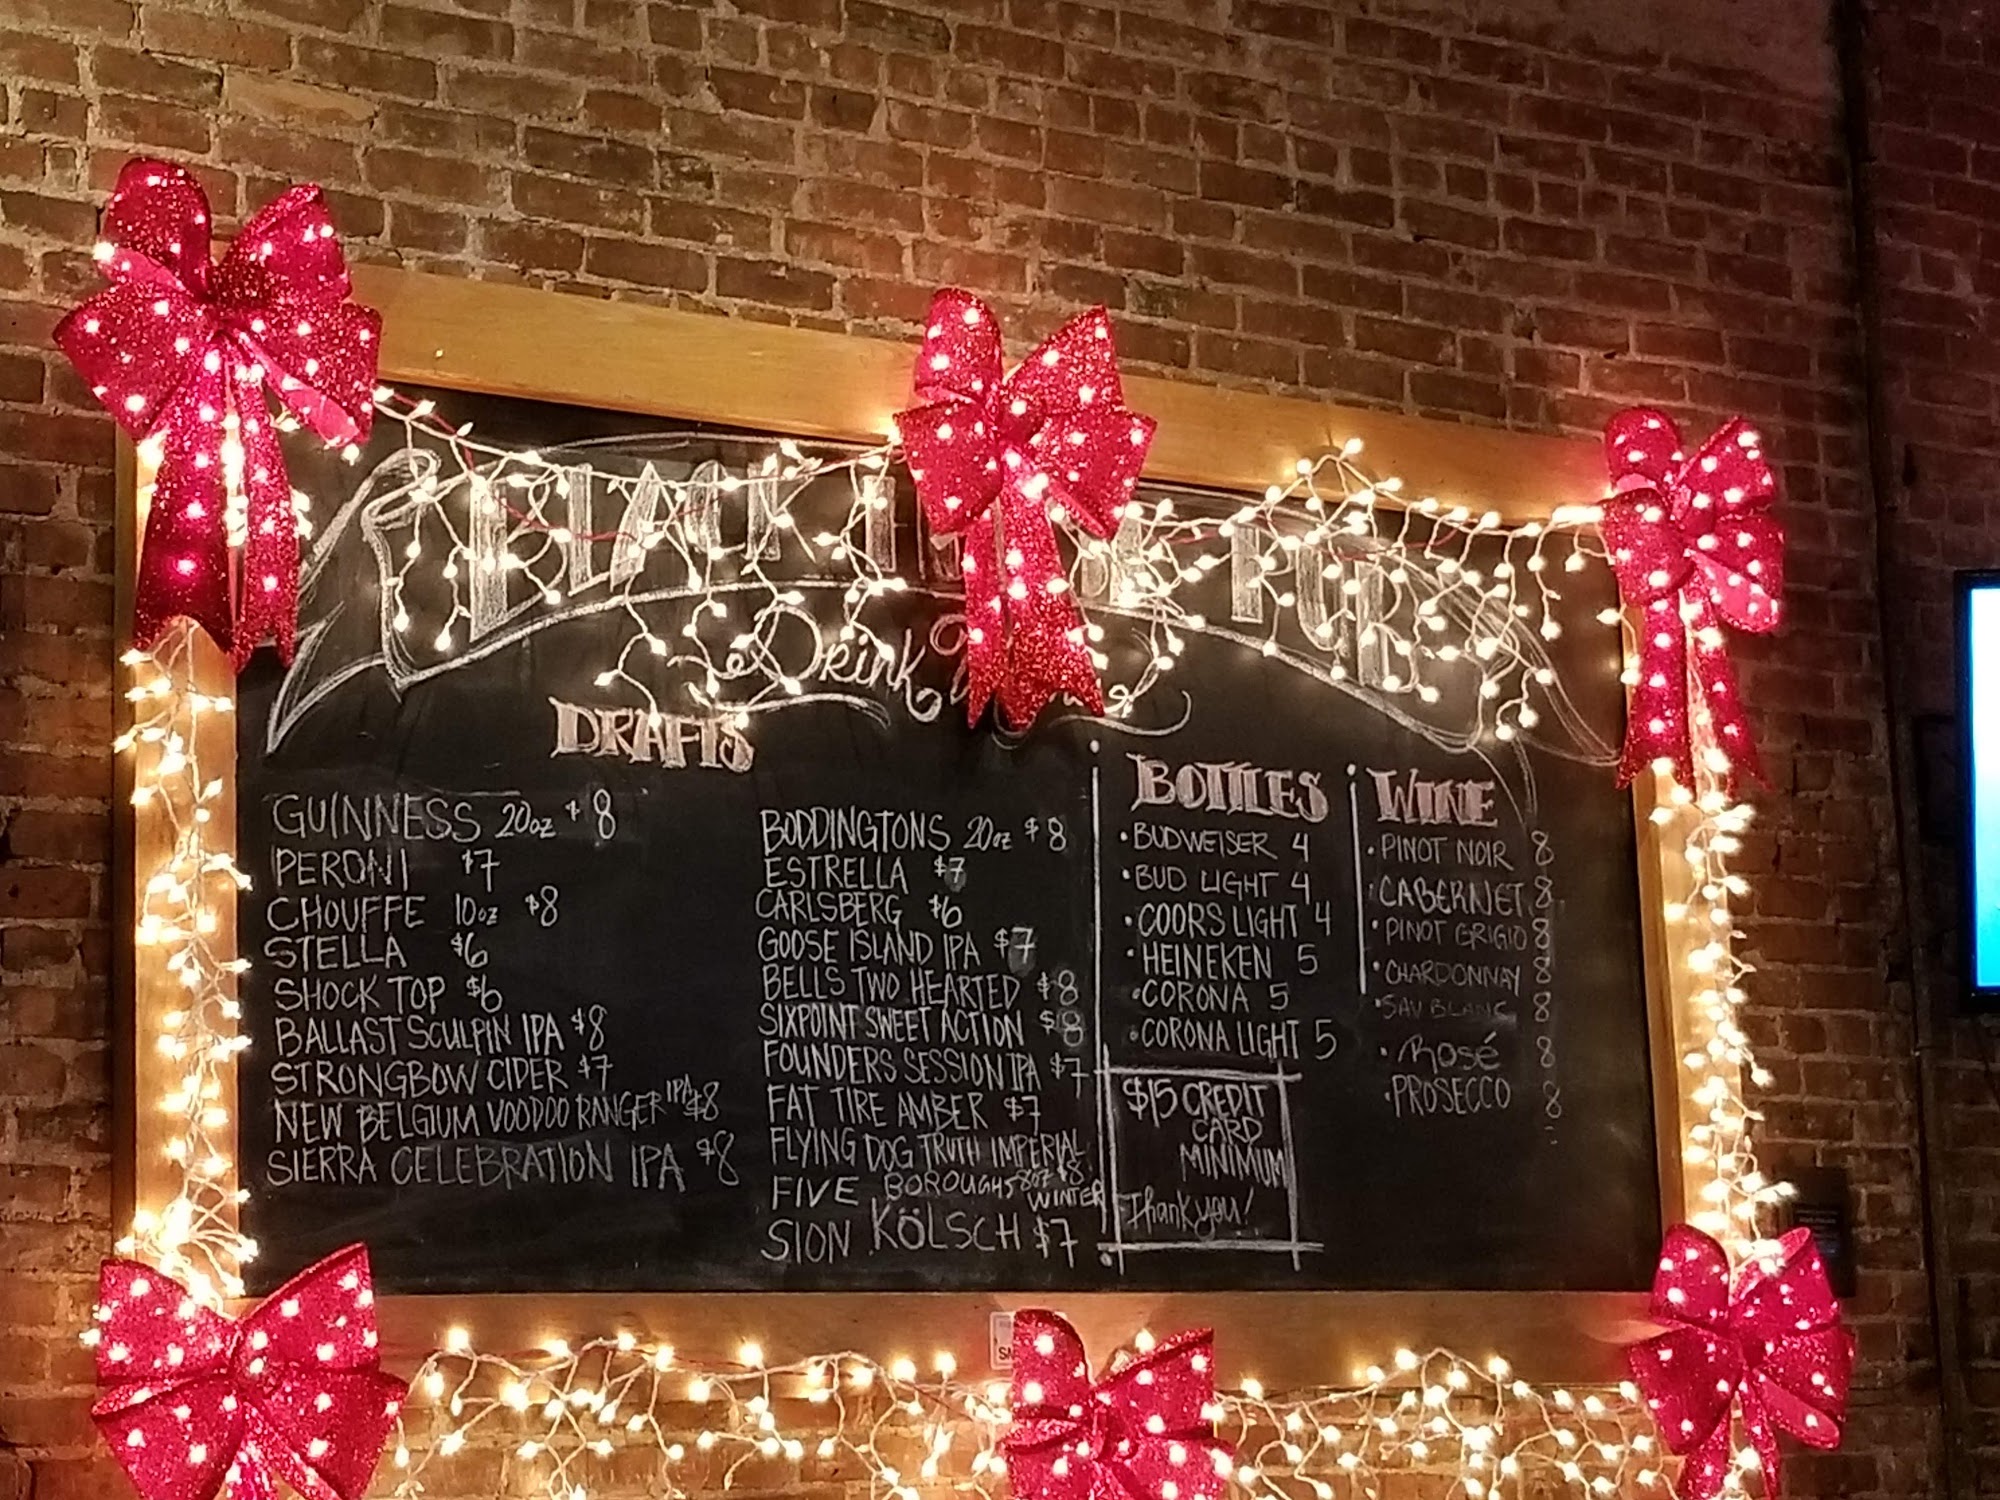 BLACK
PUB
Drink
DRAFTS
GUINNESS 20oz $8
PERONI $7
CHOUFFE 10oz $8
STELLA $6
SHOCK TOP $6
BALLAST SCULPIN IPA $8
STRONGBOW CIDER $7
NEW BELGIUM VOODOO RANGER IPA $8
SIERRA CELEBRATION IPA $8
BODDINGTONS 20oz $8
ESTRELLA $7
CARLSBERG $6
GOOSE ISLAND IPA $7
BELLS TWO HEARTED $8
SIXPOINT SWEET ACTION $8
FOUNDERS SESSION IPA $7
FAT TIRE AMBER $7
FLYING DOG TRUTH IMPERIAL
8oz $8
FIVE BOROUGHS WINTER
SION KÖLSCH $7
BOTTLES
• BUDWEISER 4
• BUD LIGHT 4
• COORS LIGHT 4
• HEINEKEN 5
• CORONA 5
• CORONA LIGHT 5
$15 CREDIT
CARD
MINIMUM
Thank you!
WINE
• PINOT NOIR 8
• CABERNET 8
• PINOT GRIGIO 8
• CHARDONNAY 8
• SAV BLANC 8
• Rosé 8
• PROSECCO 8